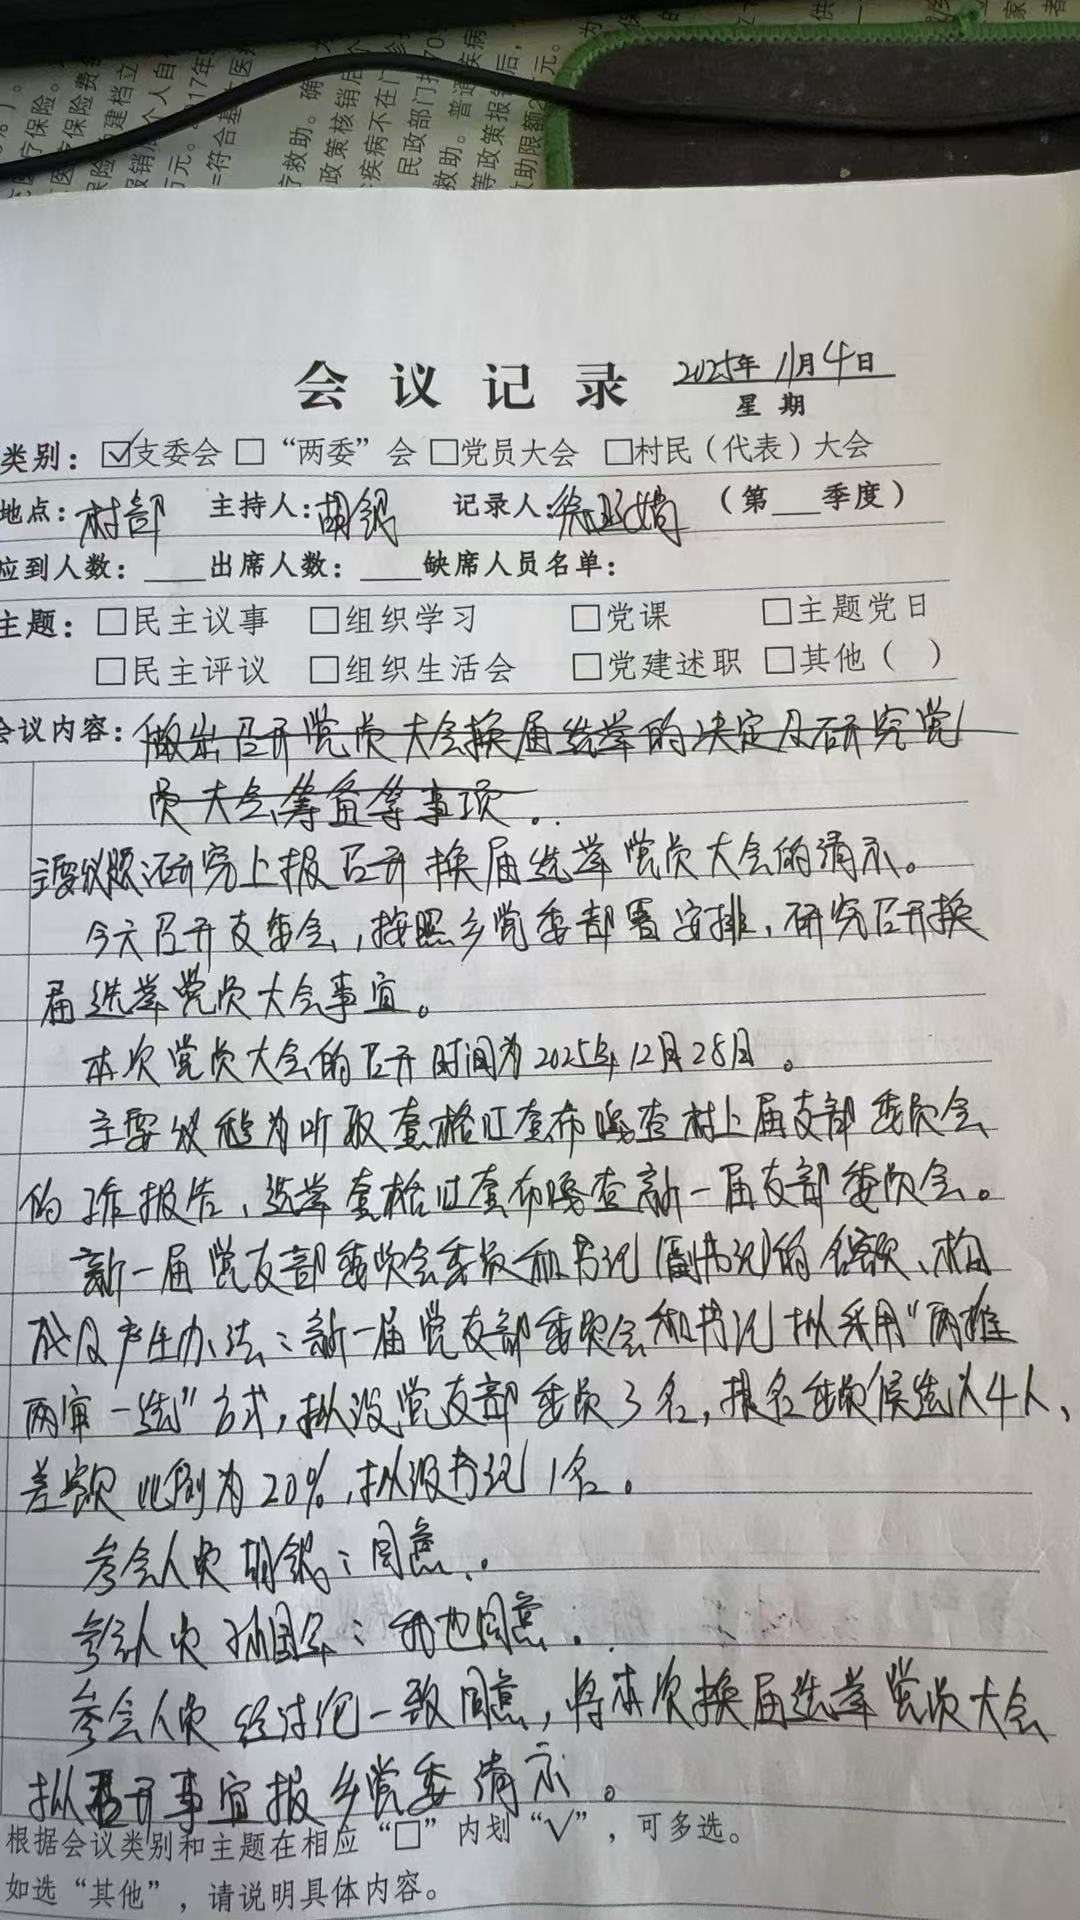 会议记录 2025年11月4日
星期
类别：☑支委会 □“两委”会 □党员大会 □村民（代表）大会
地点：村部 主持人：胡银 记录人： （第___季度）
应到人数：____出席人数：____缺席人员名单：
主题：□民主议事 □组织学习 □党课 □主题党日
□民主评议 □组织生活会 □党建述职 □其他（ ）
会议内容：做出召开党员大会换届选举的决定及研究党
员大会筹备等事项。
主要议题：研究上报召开换届选举党员大会的请示。
今天召开支委会，按照乡党委部署安排，研究召开换
届选举党员大会事宜。
本次党员大会的召开时间为2025年12月28日。
主要议程为听取查格江查布嘎查村上届支部委员会
的工作报告、选举查格江查布嘎查新一届支部委员会。
新一届党支部委员会委员和书记（副书记）的名额、构
成及产生办法：新一届党支部委员会和书记拟采用“两推
两审一选”方式，拟设党支部委员3名，提名委员候选人4人，
差额比例为20%，拟设书记1名。
参会人员胡银：同意。
参会人员孙国军：我也同意。
参会人员经讨论一致同意，将本次换届选举党员大会
拟召开事宜报乡党委请示。
根据会议类别和主题在相应“□”内划“√”，可多选。
如选“其他”，请说明具体内容。